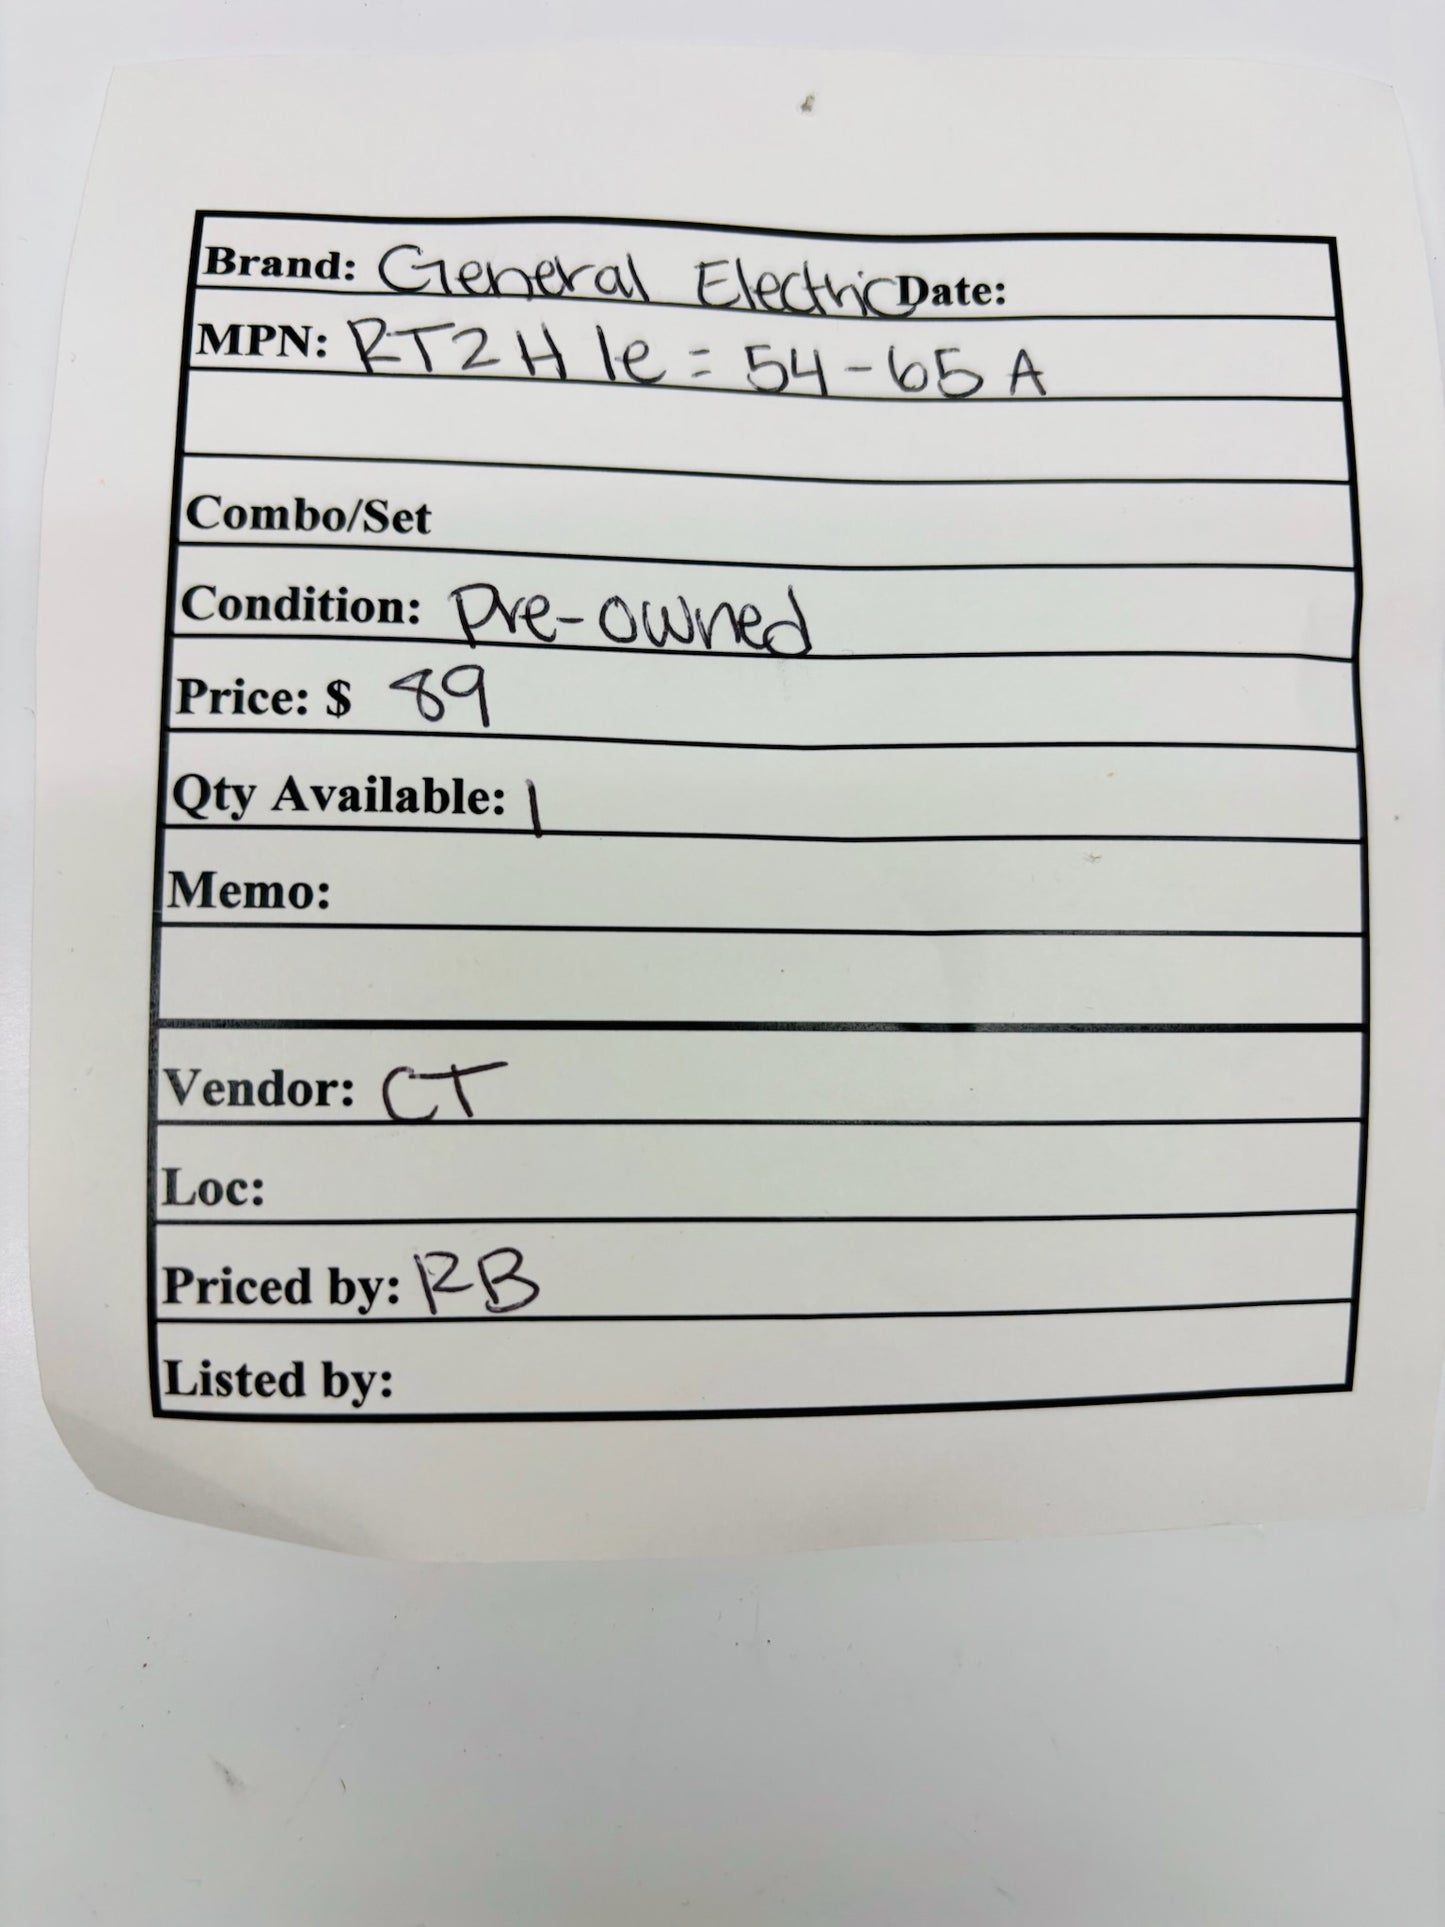 Brand: General Electric Date:
MPN: RT2H Ie = 54-65 A
Combo/Set
Condition: Pre-owned
Price: $ 89
Qty Available: 1
Memo:
Vendor: CT
Loc:
Priced by: RB
Listed by: